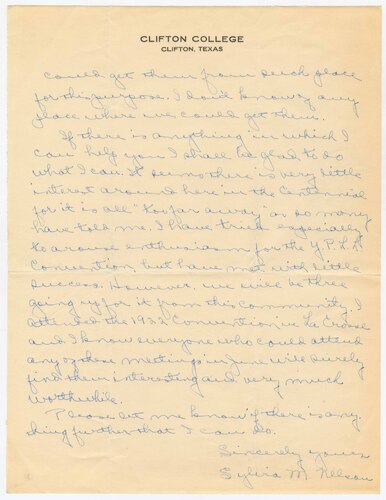 CLIFTON COLLEGE
CLIFTON, TEXAS
could get them from such place
for this purpose. I don't know of any
place where we could get them.
If there is anything in which I
can help you I shall be glad to do
what I can. It seems there is very little
interest around here in the Centennial
for it is all "too far away" as so many
have told me. I have tried especially
to arouse enthusiasm for the Y.P.L.L.
Convention, but have met with little
success. However, we will be three
going up for it from this community. I
attended the 1922 Convention in La Crosse
and I know everyone who could attend
any of these meetings in June will surely
find them interesting and very much
worthwhile.
Please let me know if there is any-
thing further that I can do.
Sincerely yours
Sylvia M. Nelson